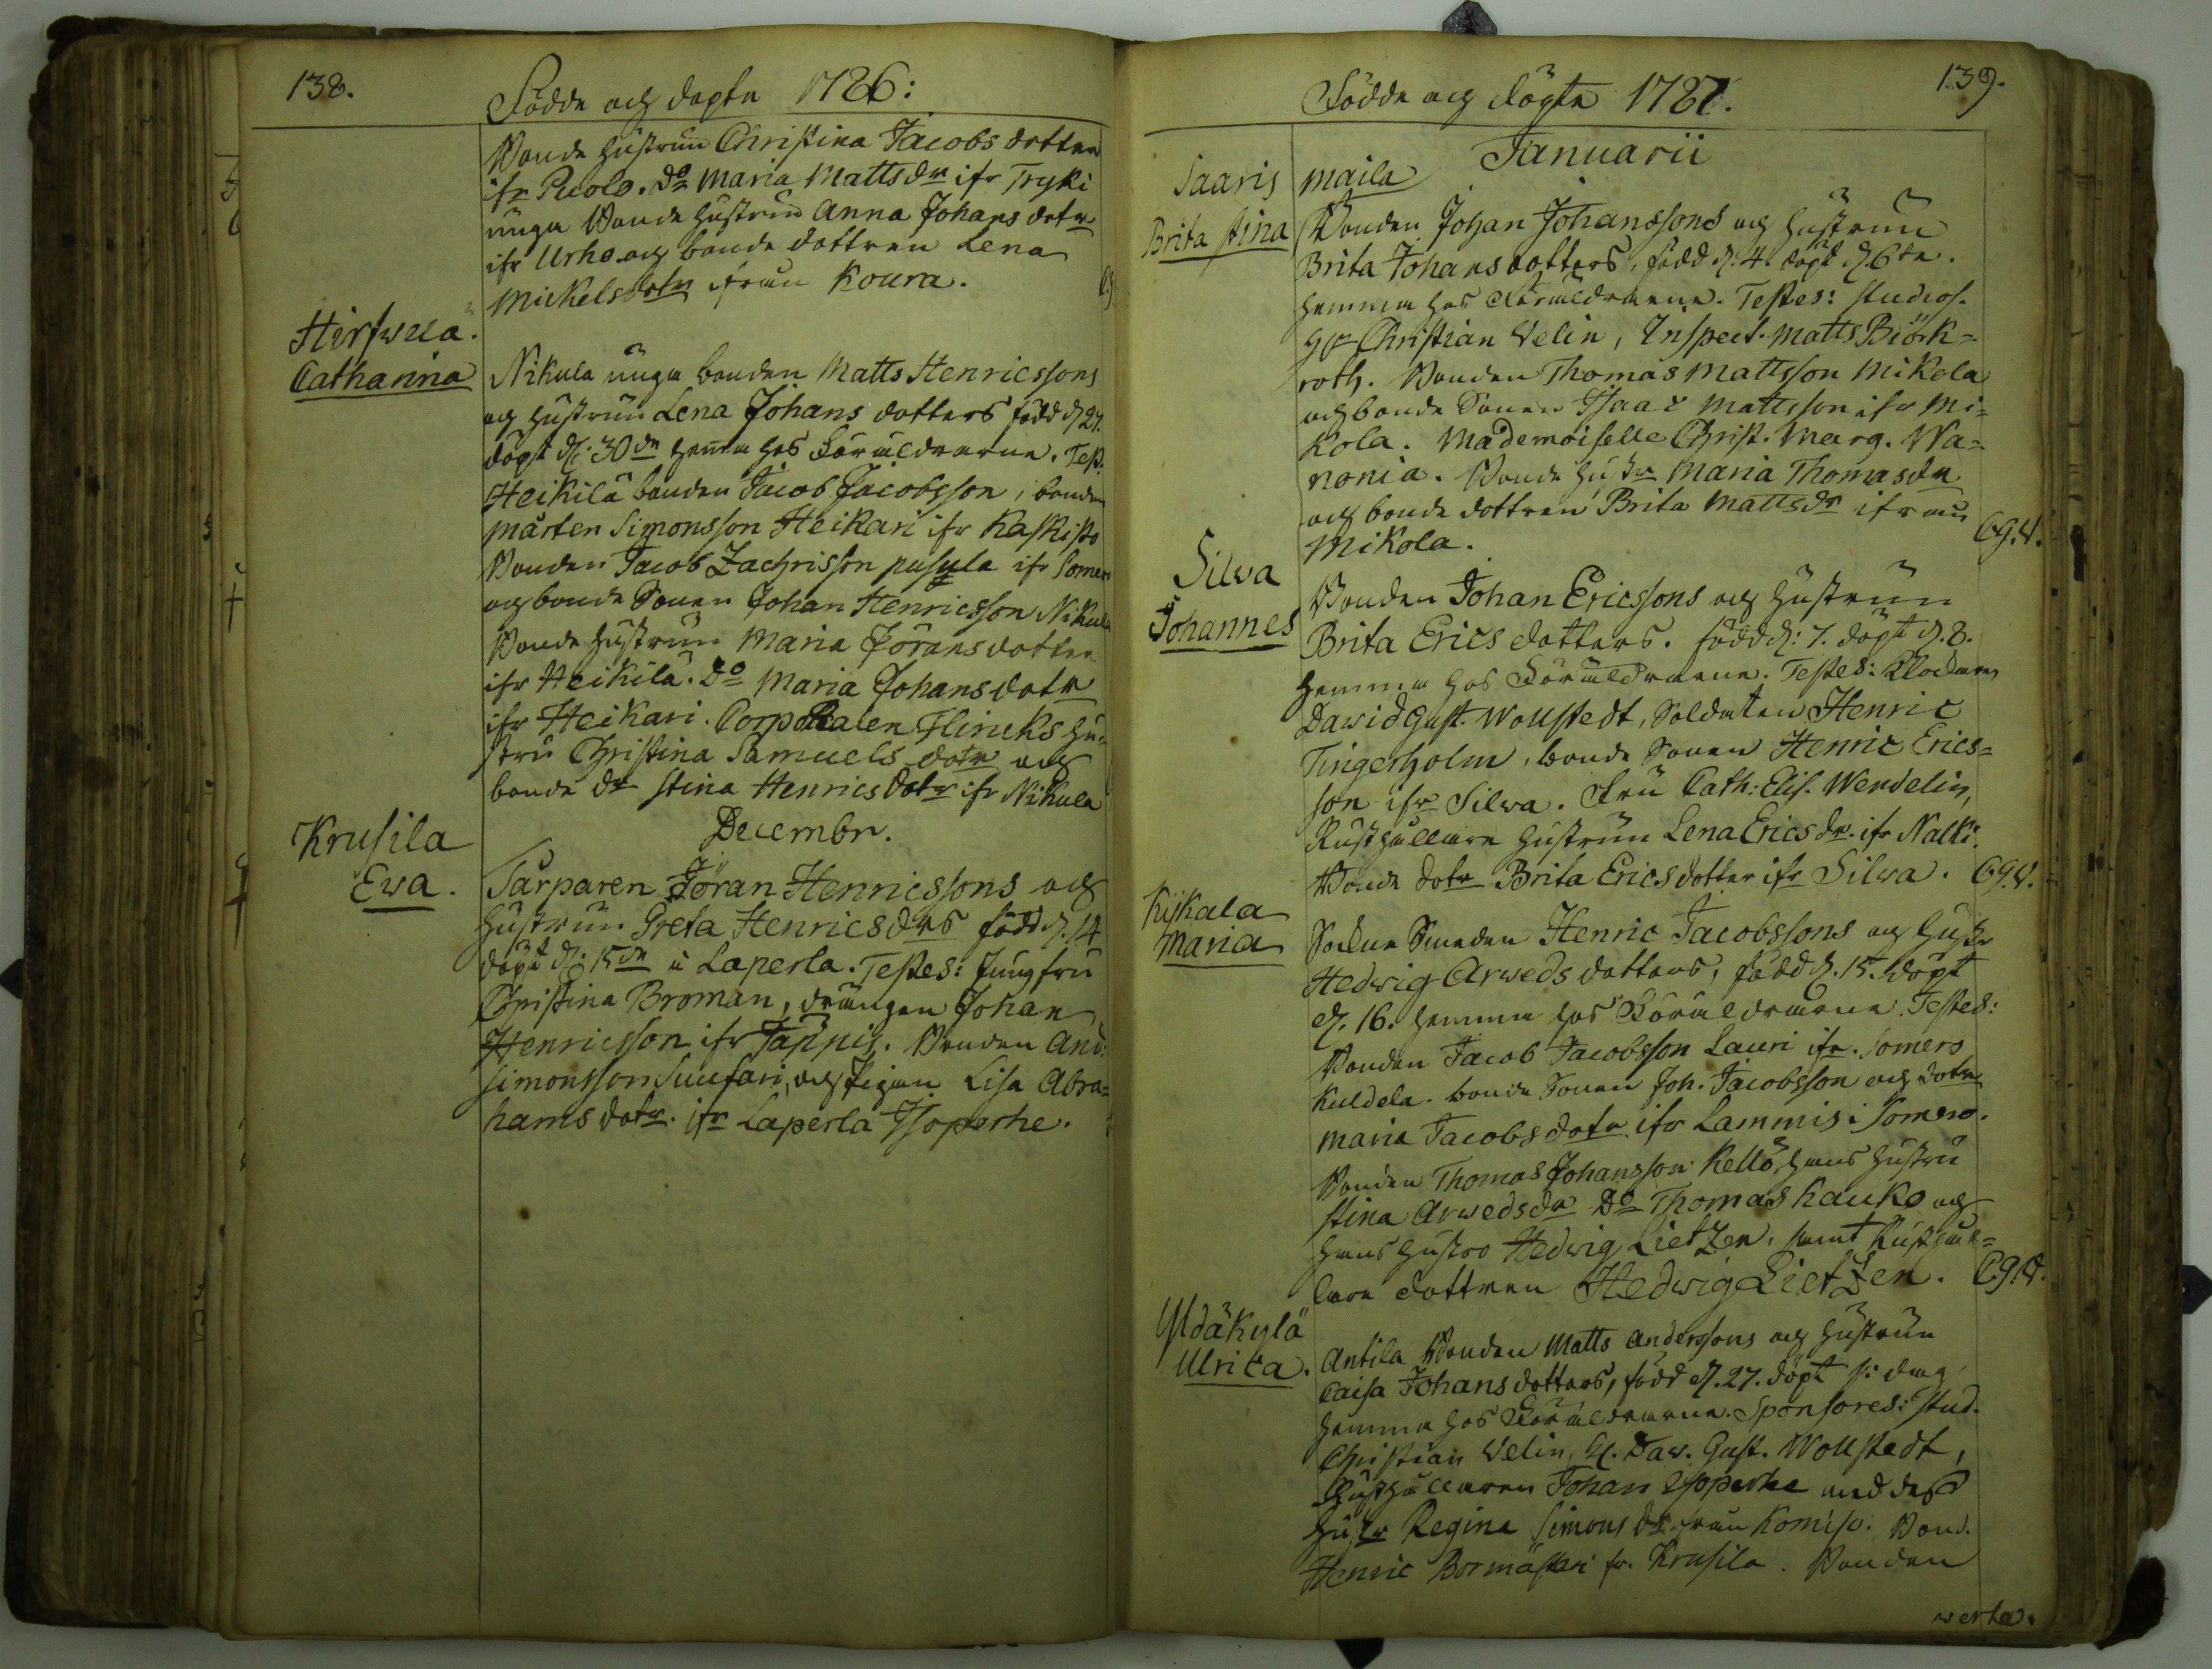 138.
Födde och döpte 1786:
Bonde hustrun Christina Jacobs dotter
ifr Puolo. Do Maria Mattsdr ifr Tryki
unga Bonde hustrun Anna Johans dotr
ifr Urho och bonde dottren Lena
Mickelsdotr ifrån Koura.
Hirswelä.
Catharina
Nikula unga bonden Matts Henricssons
och hustrun Lena Johans dotters född d 27.
döpt d: 30de hemma hos Föräldrarne. Test.
Heikilä bonden Jacob Jacobsson, bonden
Mårten Simonsson Heikari ifr Kaskisto
Bonden Jacob Zachrisson pusula ifr Somero
och bonde Sonen Johan Henricsson Nikula
Bonde hustrun Maria Jöransdotter
ifr Heikilä. Do Maria Johansdotr
ifr Heikari. Corporalen Flincks hu-
stru Christina Samuels dotr och
bonde dr Stina Henrics dotr ifr Nikula
Decembr.
Krusila
Ewa.
Tarparen Jöran Henricssons och
hustrun Greta Henricsdrs född d. 14
döpt d: 15de i Laperla. Testes: Jungfru
Christina Broman, drängen Johan
Henricsson ifr Tappis. Bonden And:
Simonsson Suutari, och Pigan Lisa Abra-
hams dotr. ifr Laperla Isoperhe.
139.
Födde och döpte 1787.
Januarii
Saaris maila
Brita Stina
Bonden Johan Johanssons och hustrun
Brita Johansdotters, född d. 4. döpt d. 6te.
hemma hos Föräldrarne. Testes: Studios.
Hr Christian Velin, Inspect. Matts Biörk-
roth. Bonden Thomas Mattsson Mikola
och bonde Sonen Isaac Mattsson ifr Mi-
kola. Mademoiselle Christ. Marg. Wa-
nonia. Bonde hustr Maria Thomasdr
och bonde dottren Brita Mattsdr ifrån
Mikola.
C.g.V.
Silwa
Johannes
Bonden Johan Ericssons och hustrun
Brita Erics dotters. född d: 7. döpt d. 8.
hemma hos Föräldrarne. Testes: Klockaren
Dawid Gust. Wollstedt, Soldaten Henric
Tingerholm, bonde Sonen Henric Erics-
son ifr Silwa. Fru Cath: Elis. Wendelin,
Rusthållare hustrun Lena Erics dr. ifr Nalki.
Bonde dotr Brita Erics dotter ifr Silwa.
C.g.V.
Kijkala
Maria
Sockne Smeden Henric Jacobssons och hustr
Hedwig Arweds dotters, född d. 15. döpt
d. 16. hemma hos Föräldrarne. Testes:
Bonden Jacob Jacobsson Lauri ifr. Somero
Kuldela. bonde Sonen Joh. Jacobsson och dotr
Maria Jacobs dotr ifr Lammis i Somero.
Bonden Thomas Johansson Kellö, hans hustru
Stina Arwedsdr Do Thomas Kauko och
hans hustro Hedwig Lietzen, samt Rusthål-
lare dottren Hedwig Lietzen.
C.g.V.
Yldäkylä
Ulrica.
Antila Bonden Matts Anderssons och hustrun
Caisa Johans dotters, född d. 27. döpt s: dag
hemma hos Föräldrarne. Sponsores: Stud.
Christian Velin, Kl. Daw. Gust. Wollstedt,
Rusthållaren Johan Isoperhe med dess
hustr Regina Simons dr. från Komiso. Bond.
Henric Bormästari fr. Krusila. Bonden
verte.